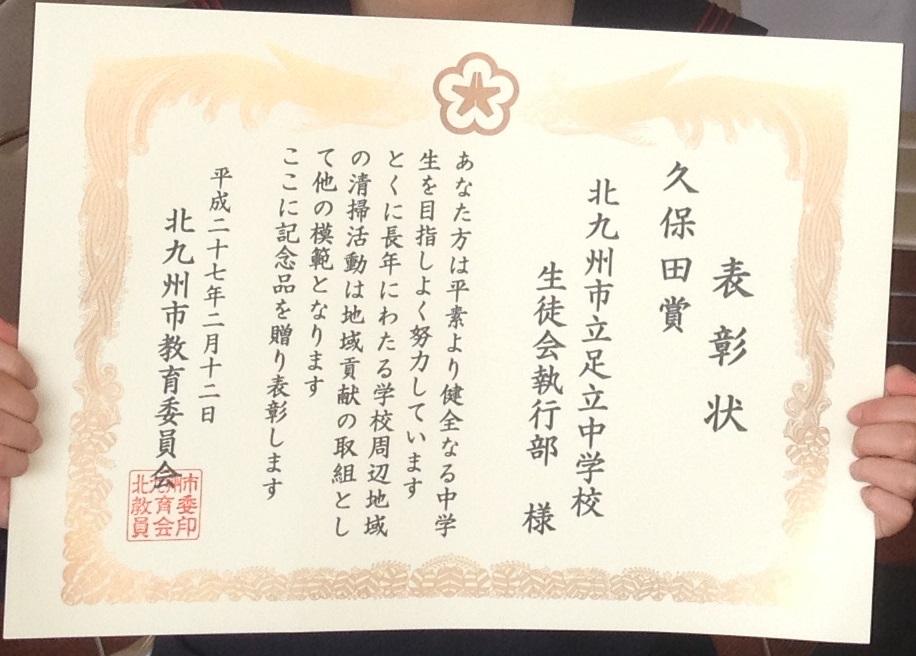 表彰状
久保田賞
北九州市立足立中学校
生徒会執行部 様
あなた方は平素より健全なる中学
生を目指しよく努力しています
とくに長年にわたる学校周辺地域
の清掃活動は地域貢献の取組とし
て他の模範となります
ここに記念品を贈り表彰します
平成二十七年二月十二日
北九州市教育委員会
市委印
九州育会
北教員